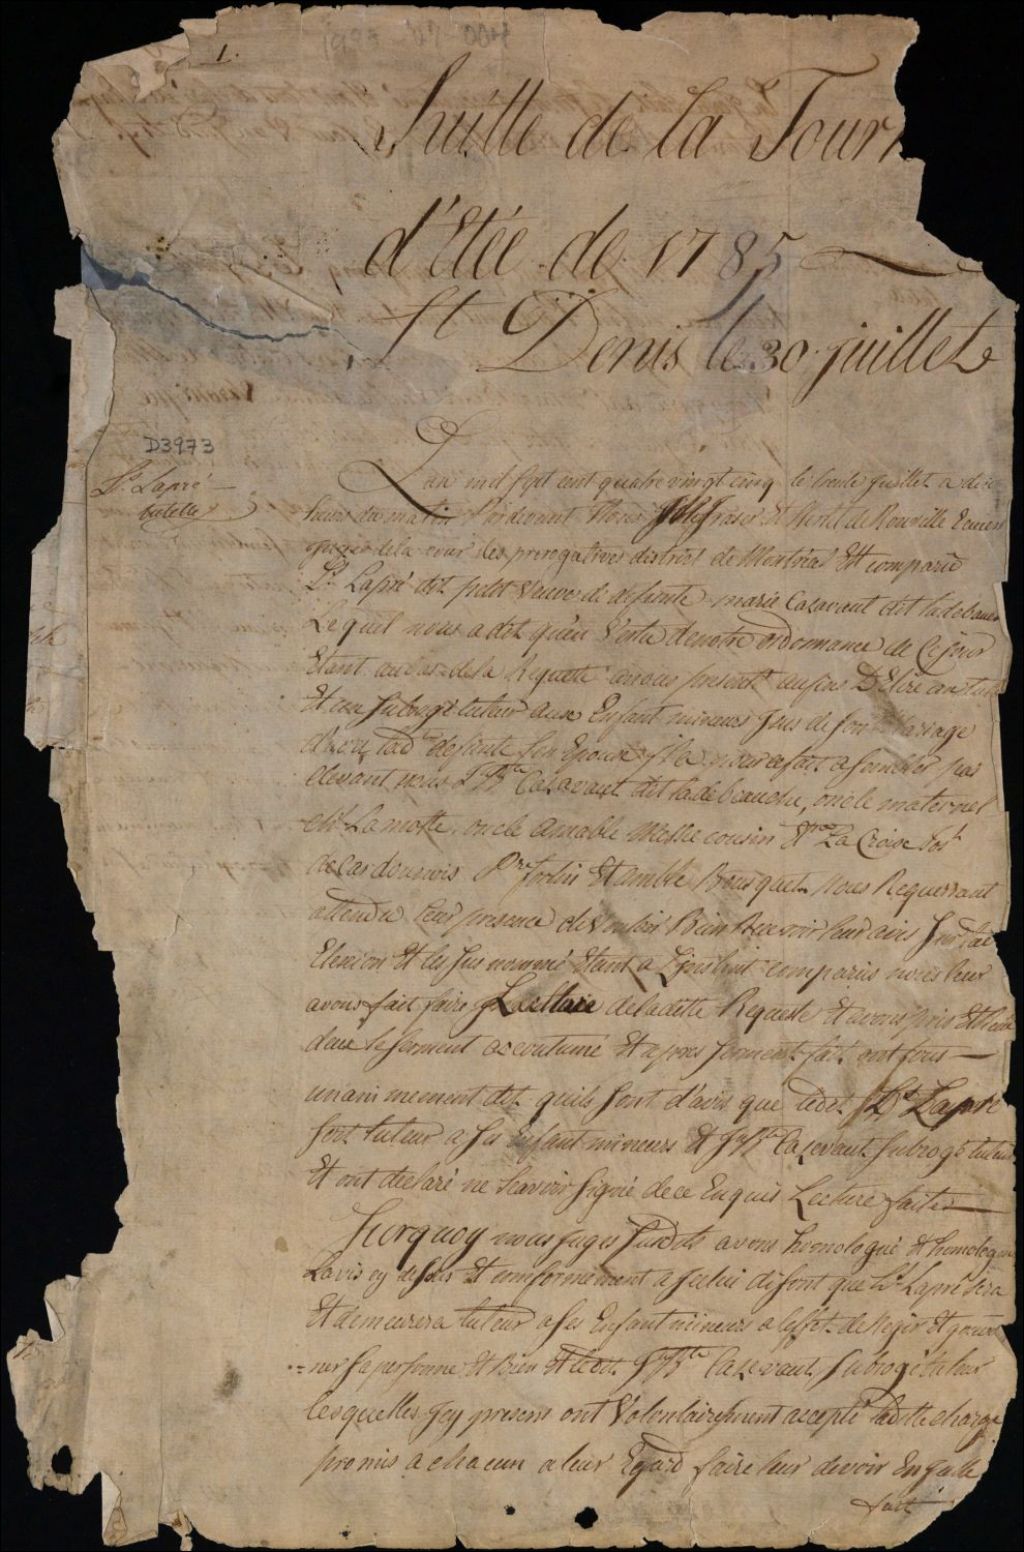 1.
Suitte de la Tourn
d'Etée de 1785
St Denis le 30 juillet
D3973
Ls. Lapré
tutelle
L'an mil sept cent quatre vingt cinq le trente juillet a dix
heures du matin Pardevant Nous John fraser et hertel de Rouville Ecuiers
juges de la cour des prerogatives district de Montréal Est comparu
Ls. Lapré dit petit Veuve de defunte marie Cazavant dit ladebauch
Lequel nous a dit qu'en Vertu denotre ordonnance de Ce jour
Etant au bas de la Requete anous presenté aufins D'Elire un tuteur
Et un Subrogé tuteur aux Enfant mineurs Jssus de son Mariage
avec lad defunte Son Epouse Jl a nous afait assembler par
devant nous J. Bte Cazavant dit ladebauche, oncle maternel
chs Lamotte, oncle Amable Messie cousin La Croix
Pre fortin Et amble Bousquet nous Requerrant
attendu leur presence de Vouloir Bien Recevoir leur avis Sur lad
Election Et les Sus nommé Etant a L'jnstant comparus nous leur
avons fait faire Lecture deladitte Requeste Et avons pris Et Recu
deux le Serment accoutumé Et apres Serment fait ont tous
unanimement dit quils Sont d'avis que ledit Ls. Lapré
Soit tuteur a Ses Enfant mineurs Et J. Bte Cazevant Subrogé tuteur
Et ont declaré ne Scavoir Signé dece Enquis Lecture faite
Surquoy nous juges Susdits avons homologué Et homologuons
Lavis cy dessus Et conformement a Jcelui disont que Ls. Lapré Sera
Et demeurera tuteur a Ses Enfant mineurs a leffet de Regir Et gouver
ner Sa personne Et Bien Et ledit J. Bte Cazevant Subrogé tuteur
lesquelles Jcy present ont Volontairement accepté laditte charge
promis a chacun a leur Egard faire leur devoir
fait